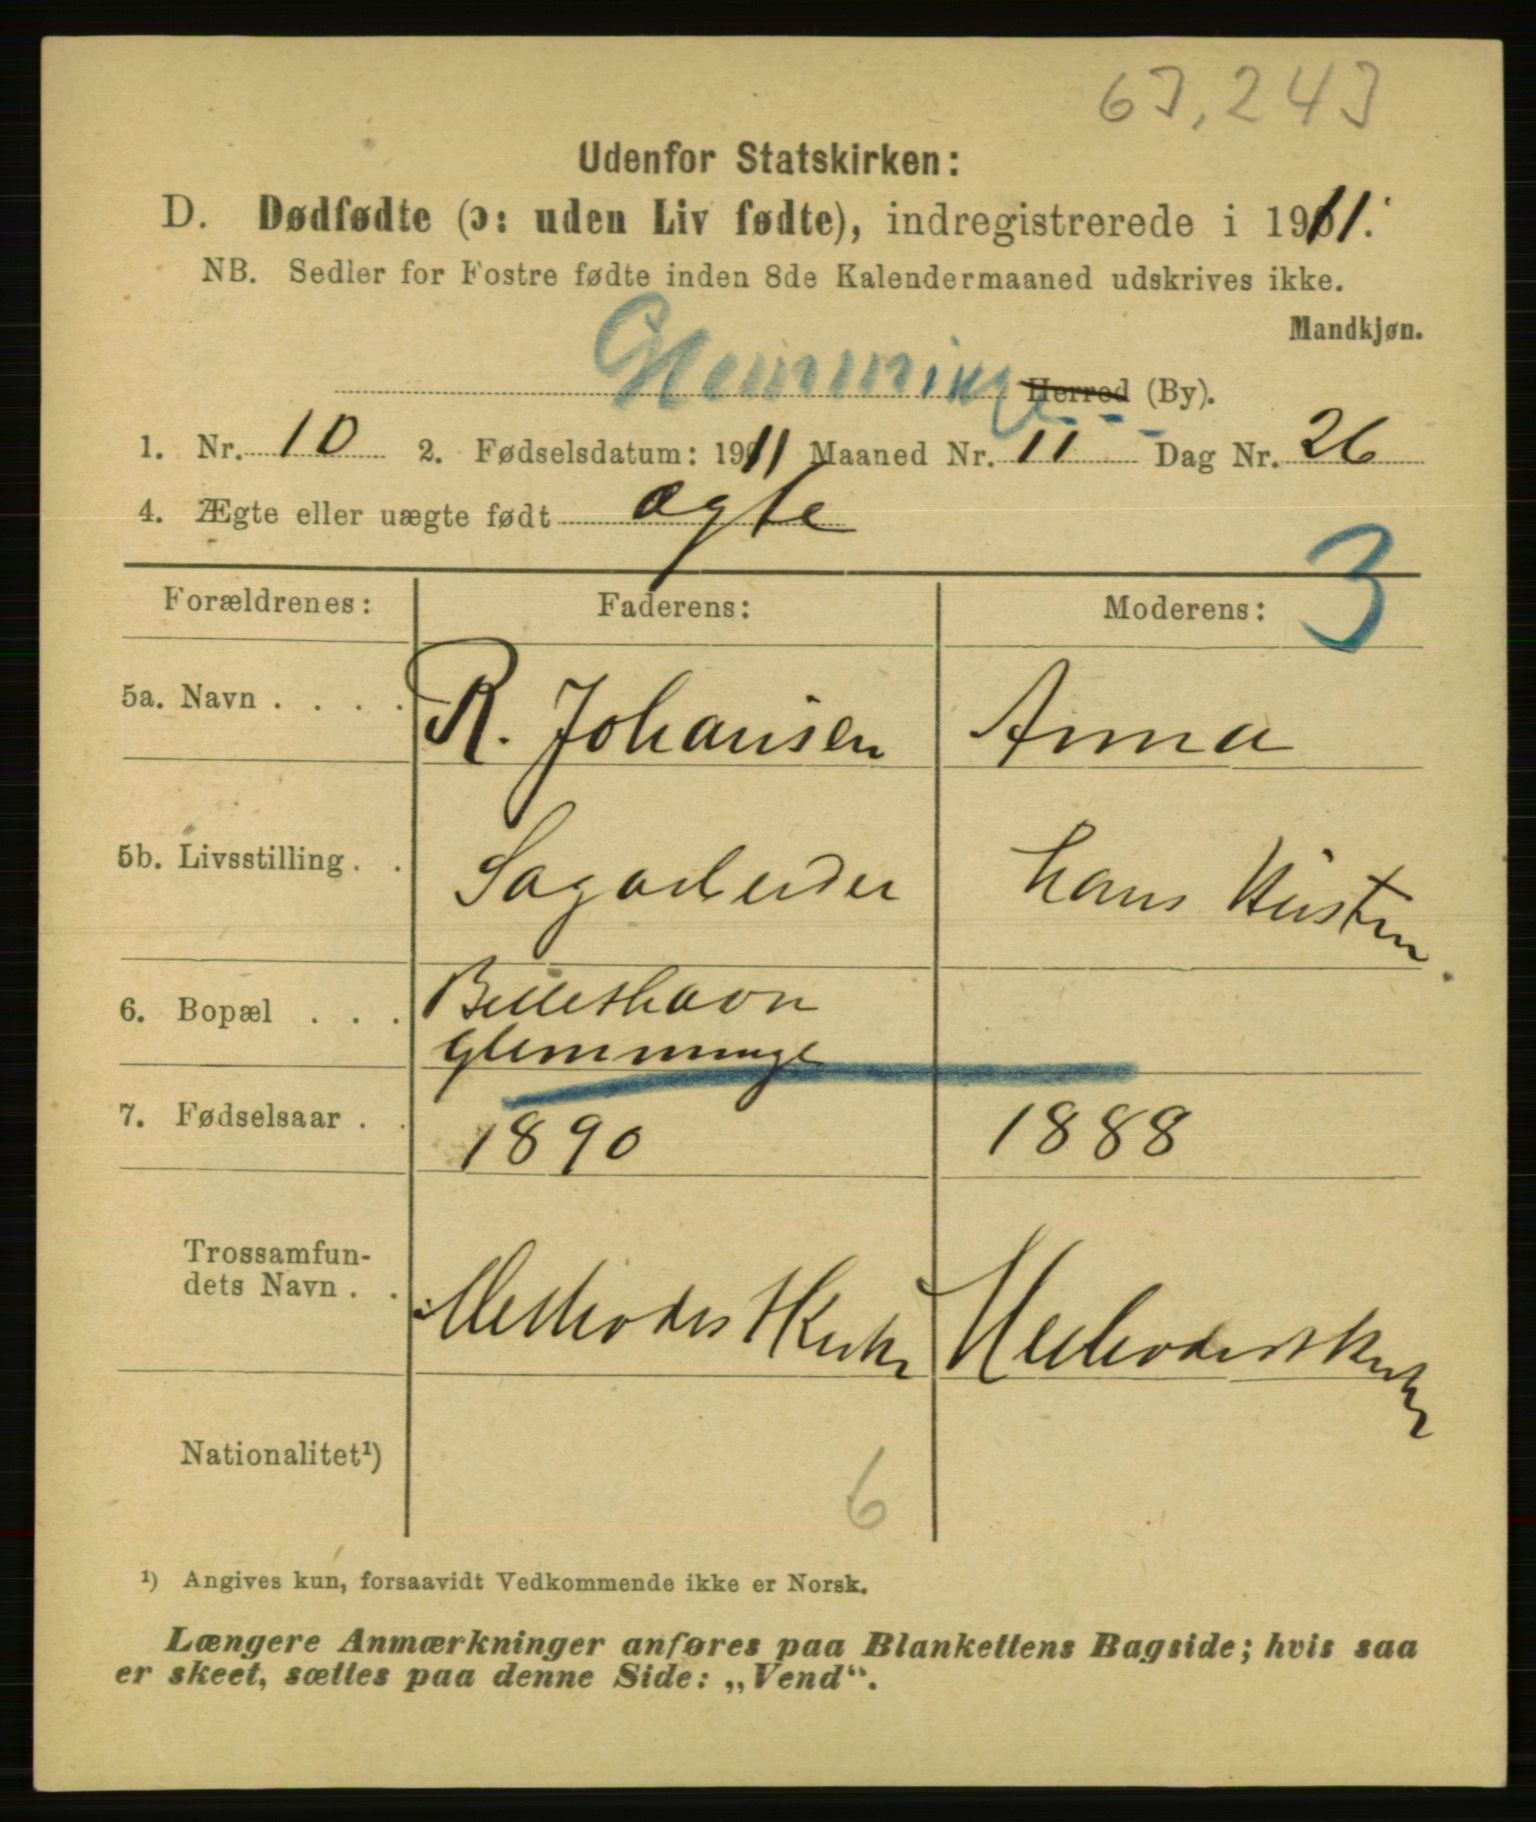 67,247
Udenfor Statskirken:
D. Dødfødte (ɔ: uden Liv fødte), indregistrerede i 1911.
NB. Sedler for Fostre fødte inden 8de Kalendermaaned udskrives ikke.
Mandkjøn.
Glemminge Herred (By).
1. Nr. 10 2. Fødselsdatum: 1911 Maaned Nr. 11 Dag Nr. 26
4. Ægte eller uægte født ægte
3
Forældrenes: Faderens: Moderens:
5a. Navn . . . . R. Johansen Anna
5b. Livsstilling . . Sagarbeider hans Hustru.
6. Bopæl . . .
Glemminge
7. Fødselsaar . . 1890 1888
Trossamfun-
dets Navn . . Methodistkirke Methodistkirke
Nationalitet¹)
6
¹) Angives kun, forsaavidt Vedkommende ikke er Norsk.
Længere Anmærkninger anføres paa Blankettens Bagside; hvis saa
er skeet, sættes paa denne Side: „Vend“.